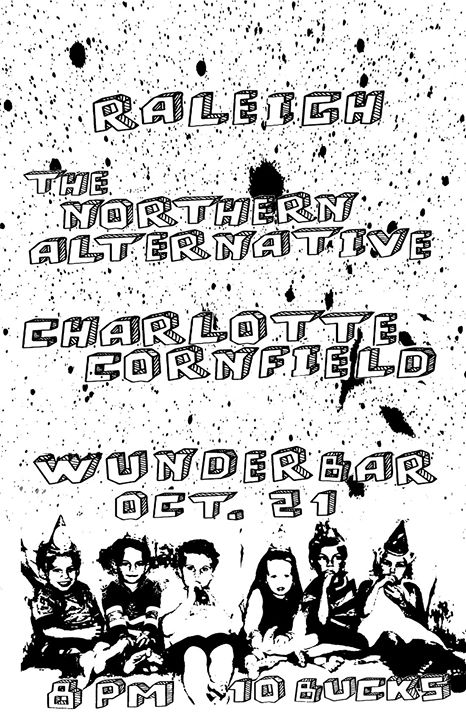 RALEIGH
THE
NORTHERN
ALTERNATIVE
CHARLOTTE
CORNFIELD
WUNDERBAR
OCT. 21
8 PM 10 BUCKS